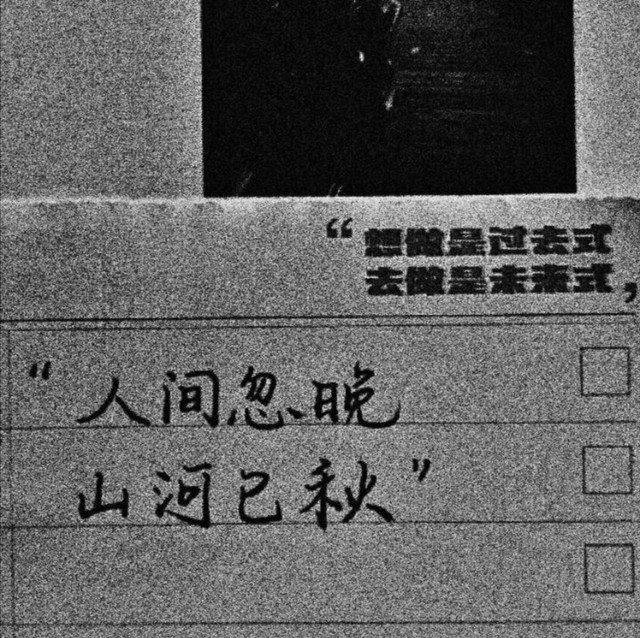 “想做是过去式
去做是未来式,
“人间忽晚
山河已秋”